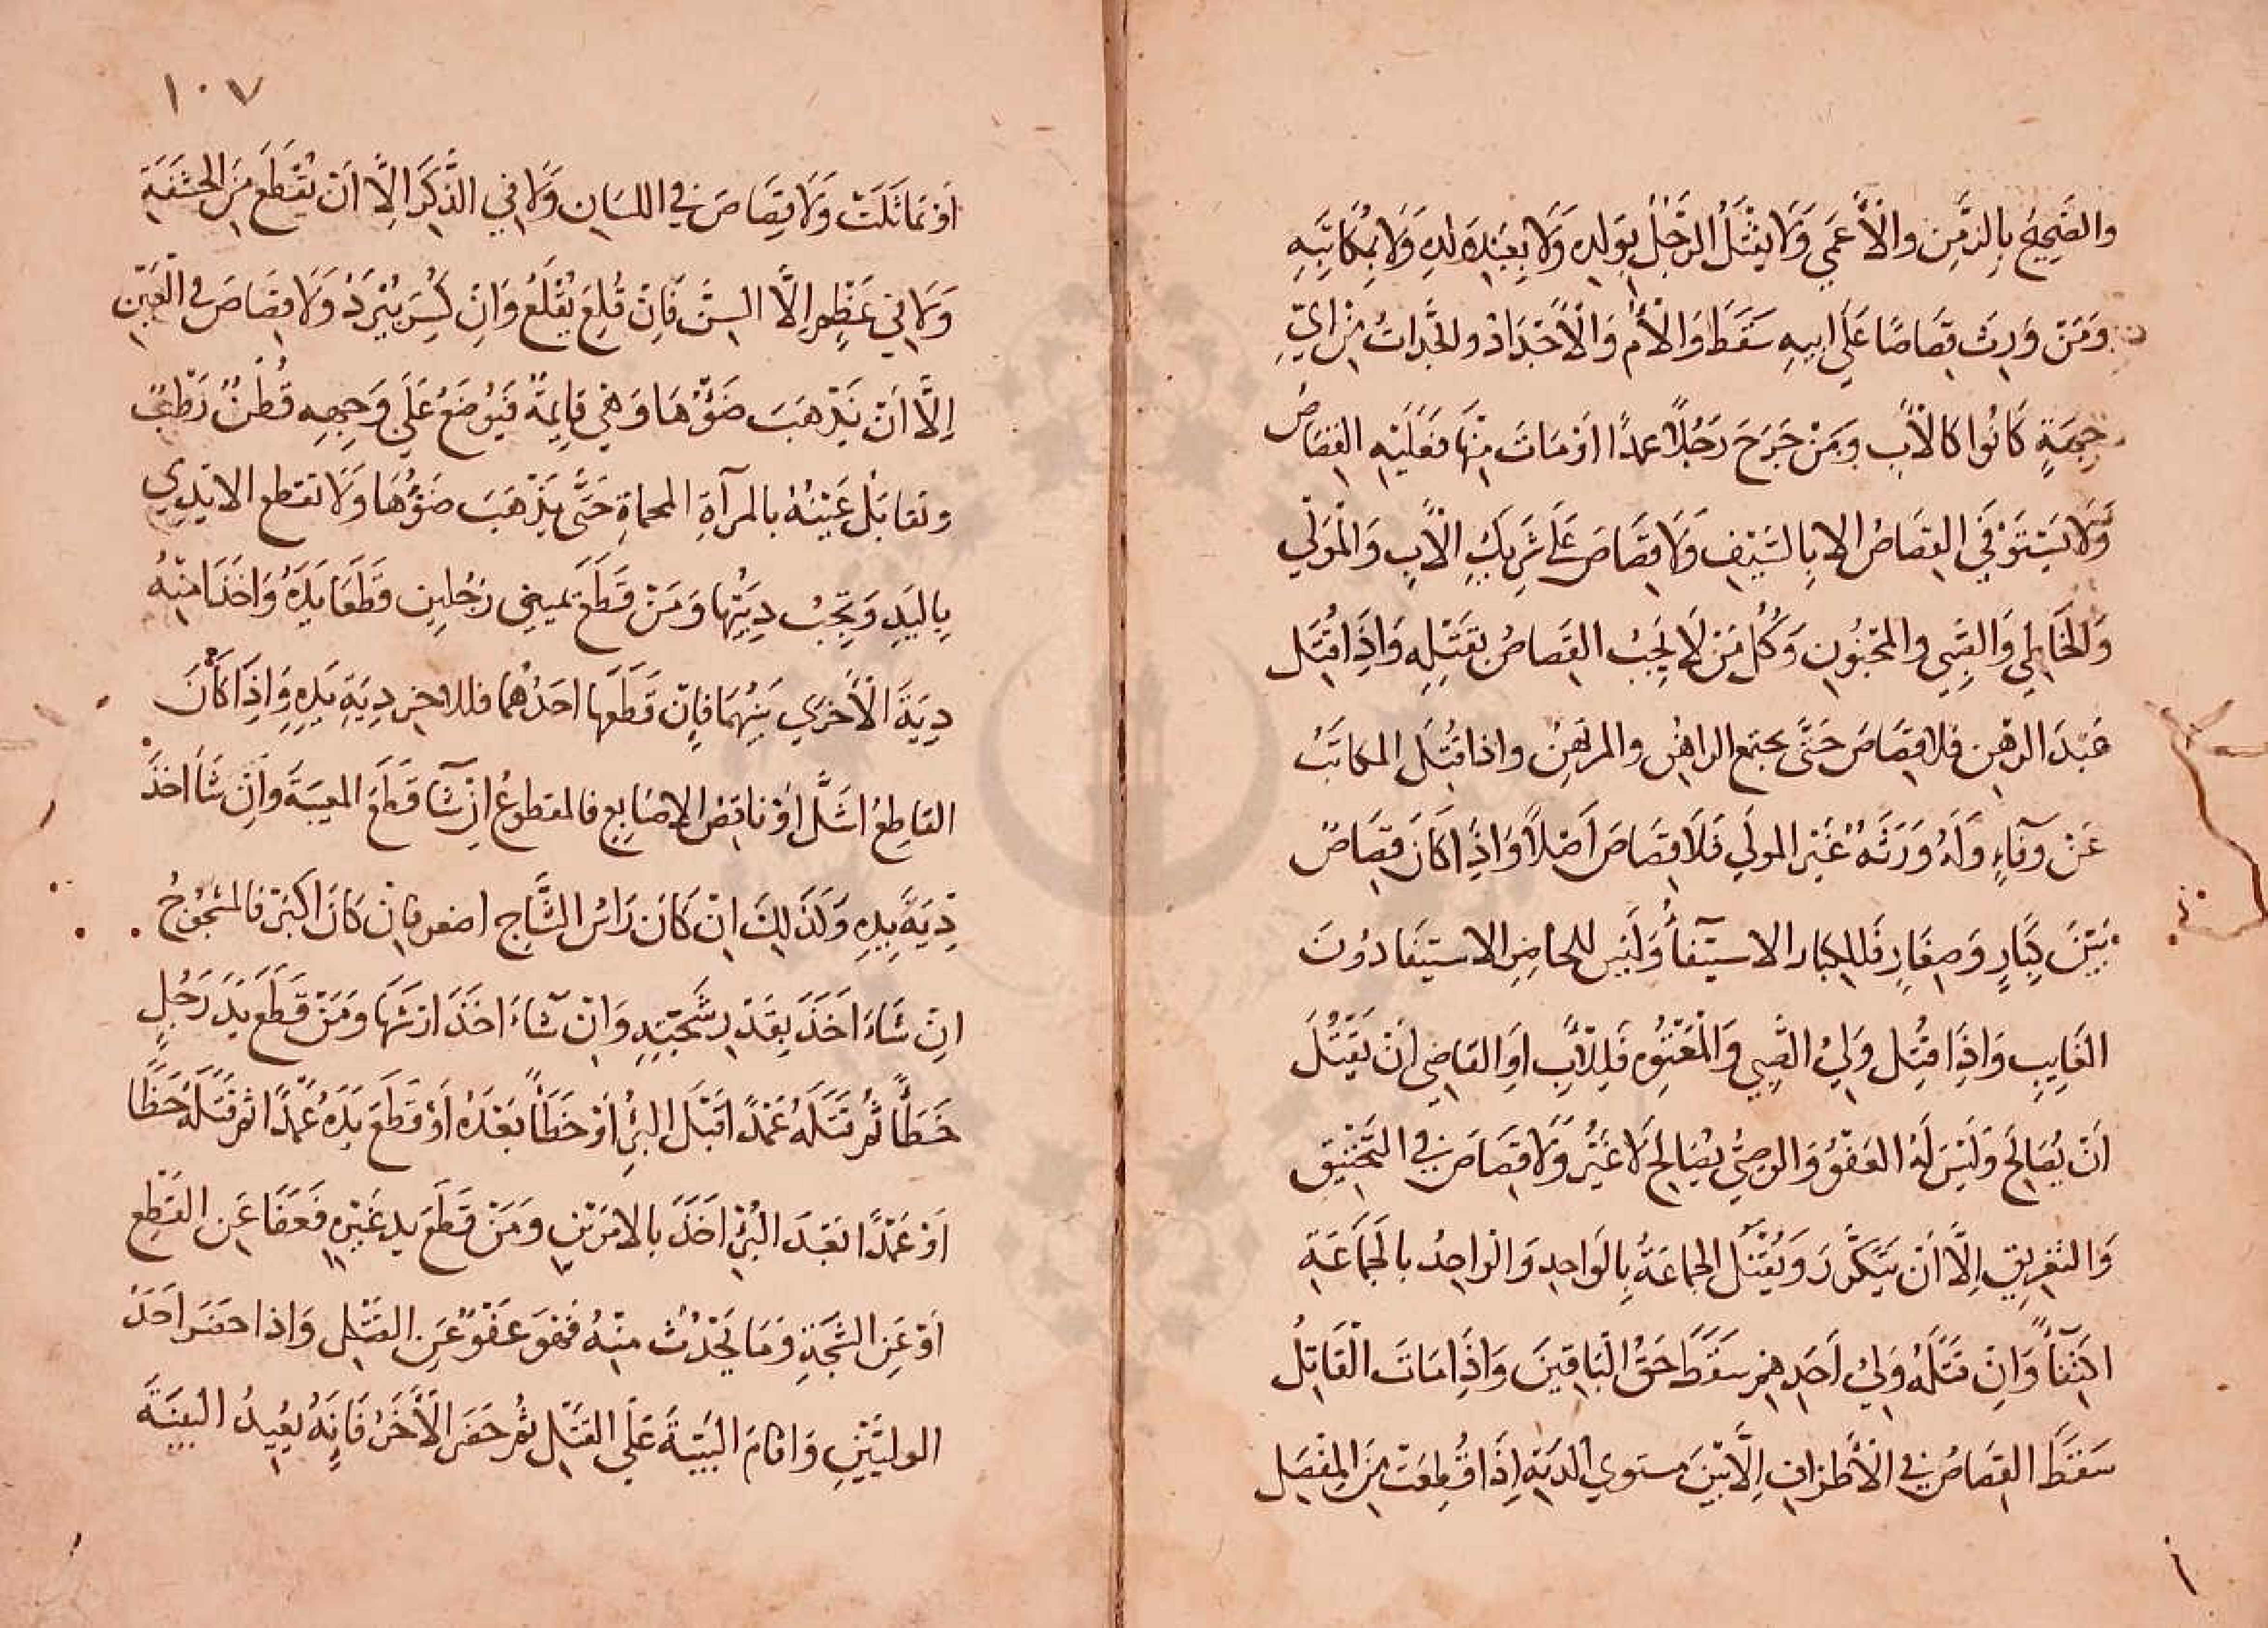 والصَّحِيحُ بِالزَّمِنِ والْأَعْمَي وَلَا يقْتَلُ الرَّجُلُ بِوَلِدِه وَلَا بِعَبْدِ وَلَدِهِ وَلَا بِمُكَاتَبِهِ
وَمَنْ وَرِثَ قِصَاصًا عَلَي ابيهِ سَقَطَ وَالْأُمُّ وَالْأَجْدَادُ والجَدَّاتُ مِنْ ايِّ
جِهَةٍ كَانُوا كالْأَبِ وَمَنْ جَرَحَ رَجُلًا عمدًا اوْ مَاتَ مِنْهَا فعَلَيْهِ القصَاصُ
وَلَا يَسْتَوْفَي القِصَاصُ الا بِالسَّيْفِ وَلَا قِصَاصَ عَلَي شَرِيكِ الْأَبِ وَالْمَوْلَي
وَالخَاطِي وَالصَّبِي والمجْنُونِ وَكُلُّ مَنْ لَا يَجِبُ القصَاصُ بقَتْلِهِ وَاذَا قُتِلَ
عَبْدَ الرَّهْنِ فلا قِصَاصَ حَتَّى يجتمع الراهِنُ والمرتَهِنُ واذا قُتِلَ المكاتَبُ
عَنْ وَفآءٍ وَلَهُ وَرَثَهٌ غَيْرَ المولَي فَلَا قِصَاصَ اَصْلاً وَاذَا كَانَ قِصَاصٌ
بَيْنَ كِبَارٍ وَصِغَارٍ فَللكبار الاستيفأُ وَلَيْس للحاضِرِ الاستيفَا دُونَ
الغَايِبِ وَاذَا قُتِل وَلِيُ الصَّبِي وَالْمَعْتُوهِ فَلِلْأَبِ اوِ القاضِي اَنْ يَقْتُلَ
اَنْ يُصَالِحَ وَلَيْسَ لَهُ العَفْوُ وَالوصِيُّ يصَالِحُ لَا غَيْرُ وَلَا قِصَاصَ فِي التَّخْنِيقِ
وَالتغريقِ اِلَّا اَنْ يَتَكَرَّرَ وَيُقْتَلُ الجماعَةُ بِالوَاحِدِ وَالْواحِدُ بالجَمَاعَةِ
اكتفآً وَاِنْ قتَلَهُ وَلِيُ اَحَدِهِمْ سَقَطَ حَقُّ الْبَاقِينَ وَاذَا مَاتَ الْقَاتِلُ
سَقَطَ القِصَاصُ فِي الْأَطْرَافِ اِلَّا بَيْنَ مستوي الديَةِ اِذَا قُطِعَتْ مِنَ المِفْصَل
١٠٧
اَوْ تمَاثَلَتْ وَلَا قِصَاصَ في اللسَانِ وَلَا فِي الذَّكَرِ الَّا اَنْ تُقْطَعَ مِنَ الحشَفَةِ
وَلَا فِي عَظْمٍ اِلَّا السِنَّ فَاِنْ قُلِعَ يُقْلَعُ وَانْ كُسِرَ يُبْرَدُ وَلَا قِصَاصَ في الْعَيْنِ
اِلَّا اَنْ يَذْهَبَ ضَوْؤُهَا وَهْيَ قايِمَةٌ فَيُوضَعُ عَلَي وَجِهِهِ قُطْنٌ رَطْبٌ
وتقابَلُ عَيْنُهُ بالمرآةِ المحماةِ حَتَّى يَذْهَبَ ضَوْؤُهَا وَلَا تقطع الايْدِي
بِاليَدِ وَيَجِبُ دِيَتُهَا وَمَنْ قَطَعَ يميني رَجُلَيِن قَطَعَا يَدَهُ وَاَخَذَا مِنْهُ
دِيَةَ الْأُخْرَي بَيْنَهُمَا فَاِنْ قَطَعَها احَدُهُما فللاخرِ دِيَةِ يَدِهِ وَاِذَا كَانَ
القاطِعُ اشَلَّ اوْ ناقِصُ الاصَابِع فالمقطوعُ اِنْ شَآ قَطَعَ المعيبَةَ وَاَنْ شَاَ اخذَ
دِيَةَ يَدِهِ وَكَذَلِكَ انْ كَانَ رَاسُ الشَّاجِ اصغر فاِنْ كَانَ اكبَرَ فالمَشْجُوجُ
انْ شَاءَ اَخَذَ بِقَدْرِ شَجَّتِهِ وَانْ شَآءَ اخَذَ ارْشَهَا وَمَنْ قَطَعَ يَدَ رَجُلٍ
خَطَأً ثُمَّ قتَلَهُ عَمْدً اقَبْلَ البُرْءِ اَوْ خَطَأً بَعْدَهُ اَوْ قَطَعَ يَدَهُ عَمْدًا ثم قَتَلَهُ خَطَأً
اَوْ عَمْدًا بَعْدَ البُرْءِ اَخَذَ بالامْرَيْنِ وَمَنْ قَطَعَ يد غَيْرِهِ فَعَفَا عَنِ القَطْعِ
اَوْ عَنِ الشَّجَةِ وَمَا يَحْدُثُ مِنْهُ فَهُوَ عَفْوٌ عَنِ القَتْلِ وَاذا حضَرَ اَحَدُ
الوليَّيْنِ وَاقَامَ البَيّنَةَ عَلَي القَتْلِ ثُمَّ حَضَرَ الْأَخَرُ فَإِنَهُ يعُيدُ البيِّنَةَ